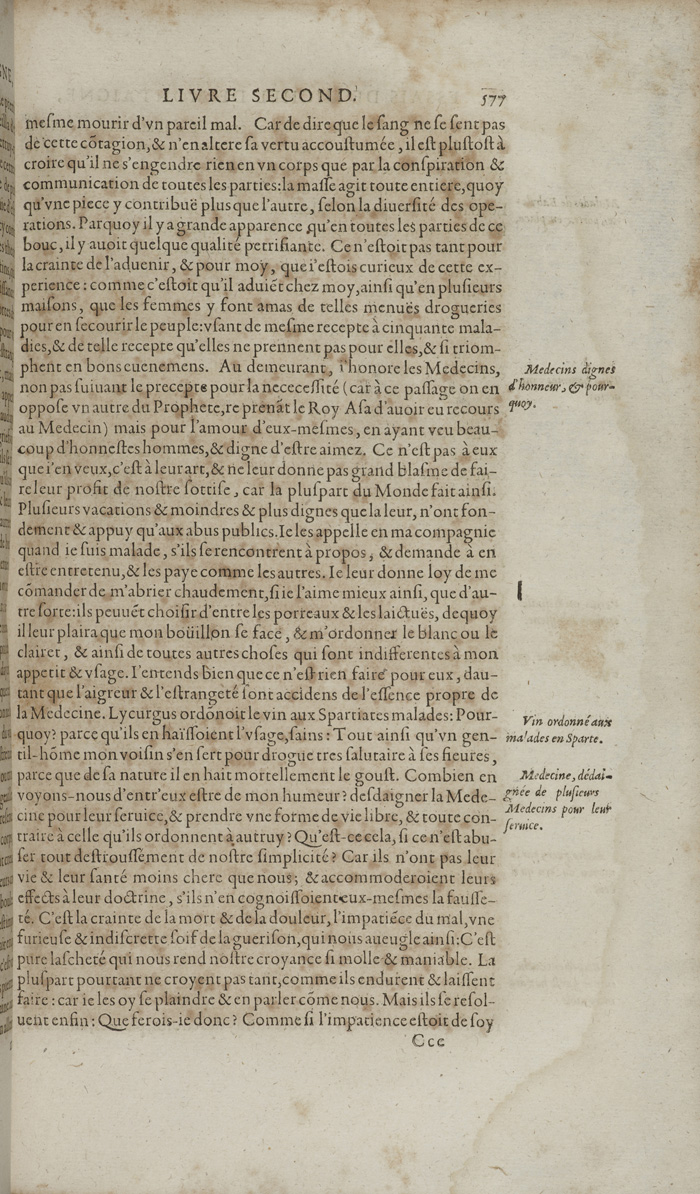 LIVRE SECOND. 577
meſme mourir d'vn pareil mal. Car de dire que le ſang ne ſe ſent pas
de cette cõtagion, & n'en altere ſa vertu accouſtumée, il eſt pluſtoſt à
croire qu'il ne s'engendre rien en vn corps que par la conſpiration &
communication de toutes les parties: la maſſe agit toute entiere, quoy
qu'vne piece y contribuë plus que l'autre, ſelon la diuerſité des ope-
rations. Parquoy il y a grande apparence, qu'en toutes les parties de ce
bouc, il y auoit quelque qualité petrifiante. Ce n'eſtoit pas tant pour
la crainte de l'aduenir, & pour moy, que i'eſtois curieux de cette ex-
perience: comme c'eſtoit qu'il aduiét chez moy, ainſi qu'en pluſieurs
maiſons, que les femmes y font amas de telles menuës drogueries
pour en ſecourir le peuple: vſant de meſme recepte à cinquante mala-
dies, & de telle recepte qu'elles ne prennent pas pour elles, & ſi triom-
phent en bons euenemens. Au demeurant, i'honore les Medecins,
non pas ſuiuant le precepte pour la nececeſſité (car à ce paſſage on en
oppoſe vn autre du Prophete, reprenãt le Roy Aſa d'auoir eu recours
au Medecin) mais pour l'amour d'eux-meſmes, en ayant veu beau-
coup d'honneſtes hommes, & digne d'eſtre aimez. Ce n'eſt pas à eux
que i'en veux, c'eſt à leur art, & ne leur donne pas grand blaſme de fai-
re leur profit de noſtre ſottiſe, car la pluſpart du Monde fait ainſi.
Pluſieurs vacations & moindres & plus dignes que la leur, n'ont fon-
dement & appuy qu'aux abus publics. Ie les appelle en ma compagnie
quand ie ſuis malade, s'ils ſe rencontrent à propos, & demande à en
eſtre entretenu, & les paye comme les autres. Ie leur donne loy de me
cõmander de m'abrier chaudement, ſi ie l'aime mieux ainſi, que d'au-
tre ſorte: ils peuuét choiſir d'entre les porreaux & les laictuës, dequoy
il leur plaira que mon boüillon ſe face, & m'ordonner le blanc ou le
clairet, & ainſi de toutes autres choſes qui ſont indifferentes à mon
appetit & vſage. I'entends bien que ce n'eſt rien faire pour eux, dau-
tant que l'aigreur & l'eſtrangeté ſont accidens de l'eſſence propre de
la Medecine. Lycurgus ordonoit le vin aux Spartiates malades: Pour-
quoy? parce qu'ils en haïſſoient l'vſage, ſains: Tout ainſi qu'vn gen-
til-hõme mon voiſin s'en ſert pour drogue tres ſalutaire à ſes fieures,
parce que de ſa nature il en hait mortellement le gouſt. Combien en
voyons-nous d'entr'eux eſtre de mon humeur? deſdaigner la Mede-
cine pour leur ſeruice, & prendre vne forme de vie libre, & toute con-
traire à celle qu'ils ordonnent à autruy? Qu'eſt-ce cela, ſi ce n'eſt abu-
ſer tout deſtrouſſément de noſtre ſimplicité? Car ils n'ont pas leur
vie & leur ſanté moins chere que nous; & accommoderoient leurs
effects à leur doctrine, s'ils n'en cognoiſſoient eux-meſmes la fauſſe-
té. C'eſt la crainte de la mort & de la douleur, l'impatiéce du mal, vne
furieuſe & indiſcrette ſoif de la gueriſon, qui nous aueugle ainſi: C'eſt
pure laſcheté qui nous rend noſtre croyance ſi molle & maniable. La
pluſpart pourtant ne croyent pas tant, comme ils endurent & laiſſent
faire: car ie les oy ſe plaindre & en parler cõme nous. Mais ils ſe reſol-
uent enfin: Que ferois-ie donc? Comme ſi l'impatience eſtoit de ſoy
Ccc
Medecins dignes
d'honneur, & pour-
quoy.
Vin ordonné aux
malades en Sparte.
Medecine, dédai-
gnée de pluſieurs
Medecins pour leur
ſeruice.